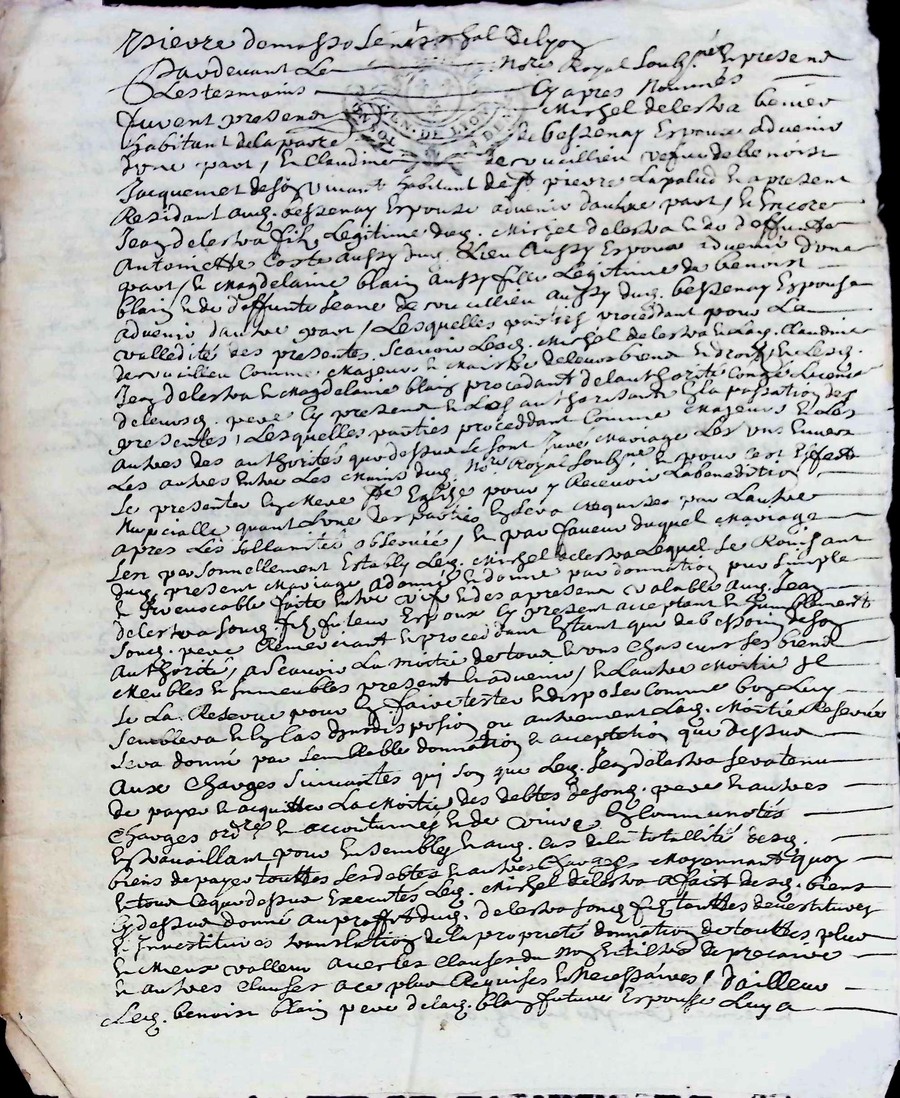 Pierre de masso Seneschal de lyon
Pardevant Le Nore Royal Soubsné En presence
Des tesmoins Cy apres Nommés
furent presens Michel delestra benier
habitant de la parre de bessenay Espoux advenir
d'une part, Et Claudine decuvillieu vefue de benoist
Jacquemet de son vivant habitant de St pierre Lapalud Et apresent
Residant aud. bessenay Espouse advenir dautre part, Et Encore
Jean delestra fils Legitime dud. Michel delestra Et de deffunte
Antoinette Coste aussy dud. Lieu Aussy Espoux advenir d'une
part, Et Magdelaine blain aussy fille Legitime de benoist
blain Et de deffunte Jeane de cuvillieu aussy dud. bessenay Espouse
advenir dautre part, Lesquelles parties procedant pour La
vallidité des presentes, Scavoir Led. Michel delestra Et Lad. Claudine
decuvillieu Comme Majeurs Et Maistre de leurs biens Et droits, Et Lesd.
Jean delestra Et Magdelaine blain procedant de lauthorité Congé Licence
de leursd. pere Cy presens Et Les authorisant a La passation des
presentes, Lesquelles parties proceddant Comme Majeurs Et Les
autres des authorités que dessus Se Sont Juré Mariage Les uns Envers
Les autres Entre Les Mains dud. Nore Royal Soubsné Et pour Cest Effect
Se presenter En Mere Ste Eglise pour y Recevoir La benediction
Nupcialle quant L'une des parties En Sera Requises par Lautre
apres Les Sollanités observée, Et par faveur duquel Mariage
Sest personnellement Estably Led. Michel delestra Lequel Se Rejouissant
dud. present Mariage a donné Et donne par donnation pure Simple
Et Irrevocable faite Entre vifs Et des apresent valable aud. Jean
delestra Sond. fils futeur Espoux Cy present acceptant Et humblement
Sond. pere Remerciant Et proceddant Entant que de bessoin de Son
Authorité, a Scavoir La moitié de tous Et uns Chascuns Ses biens
Meubles Et Immeubles present Et advenir, Et Lautre Moitié Il
Se La Reserve pour En faire tester Et disposer Comme bon Luy
Semblera Et En Cas d'Indisposion ou autrement Lad. Moitié Reservée
Sera donné par Semblable donnation Et acception que dessus
Aux Charges Suivantes qui Son que Led. Jean delestra Sera tenu
de payer Et acquitter La Moitié des debtes de Sond. pere Et autres
Charges ordres Et accoutumés Et de vivre En Communotés
En travaillant pour Ensembles Et aud. Cas de la totallité desd.
biens de payer touttes Les debtes Et autres Charges Moyennant quoy
Et tout Ceque dessus Executés Led. Michel delestra a fait desd. biens
Cy dessus donné au proffit dud. delestra Sond. fils touttes devestitures
Et Investitures translation de la proprieté donnation de touttes plus
Et Meux valleur avec Les Clauses du Non Et tiltre de precaire
Et autres Clauses ace plus Requises Et Necessaires, Dailleur
Led. benoist blain pere de lad. blain future Espouse Luy a